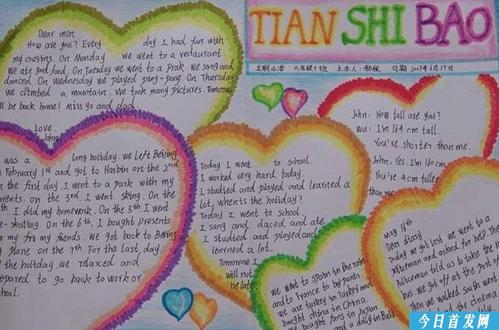 TIAN SHI BAO
Dear mom,
How are you? Every day I had fun with
my cousins. On Monday we went to a restaurant
We ate good food. On Tuesday we went to a Prak. We sang and
danced. On Wednesday we played ping-pong. On Thursday
we climbed a mountain. We took many pictures. Tomorrow
I'll be back home! Miss you and dad.
Love,
John
was a long holiday. We left Beijing
on February 1st and got to Harbin on the 2nd
the first day I went to a park with my
parents. on the 3rd I went skiing. On the
4th I did my homework. On the 5th I went
skating. On the 6th I bought presents
for my friends we get back to Beijing
by plane on the 7th. For the last day
of the holiday we relaxed and
prepared to go back to work or
school.
Today I went to school.
I worked very hard today.
I studied and played and learned a
lot, when's the holiday?
Today I went to school,
I sang and daced and ate
I studied and played and
learned a lot.
Tomorrow I will
not be
late
John: How tall are you?
Wu: I'm 164 cm tall.
You're shorter than me.
John: Yes. I'm 160 cm
You're 4cm taller
than me.
We went to Spain by
and to France by
we are turkey in Turkey and
bought china in China.
bought fans in Japan
a dilly in Bali
May 18th
Dear diary
Today we got lost. We went to a
policeman and asked for help. The
policeman told us to take the
bus. We got off at the
Then we walked south
the cinema
今日首发网